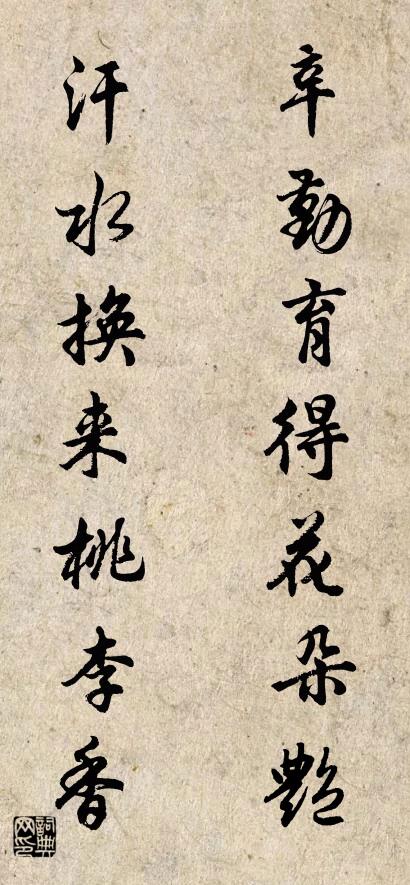 辛勤育得花朵艷
汗水换来桃李香
詞典网印